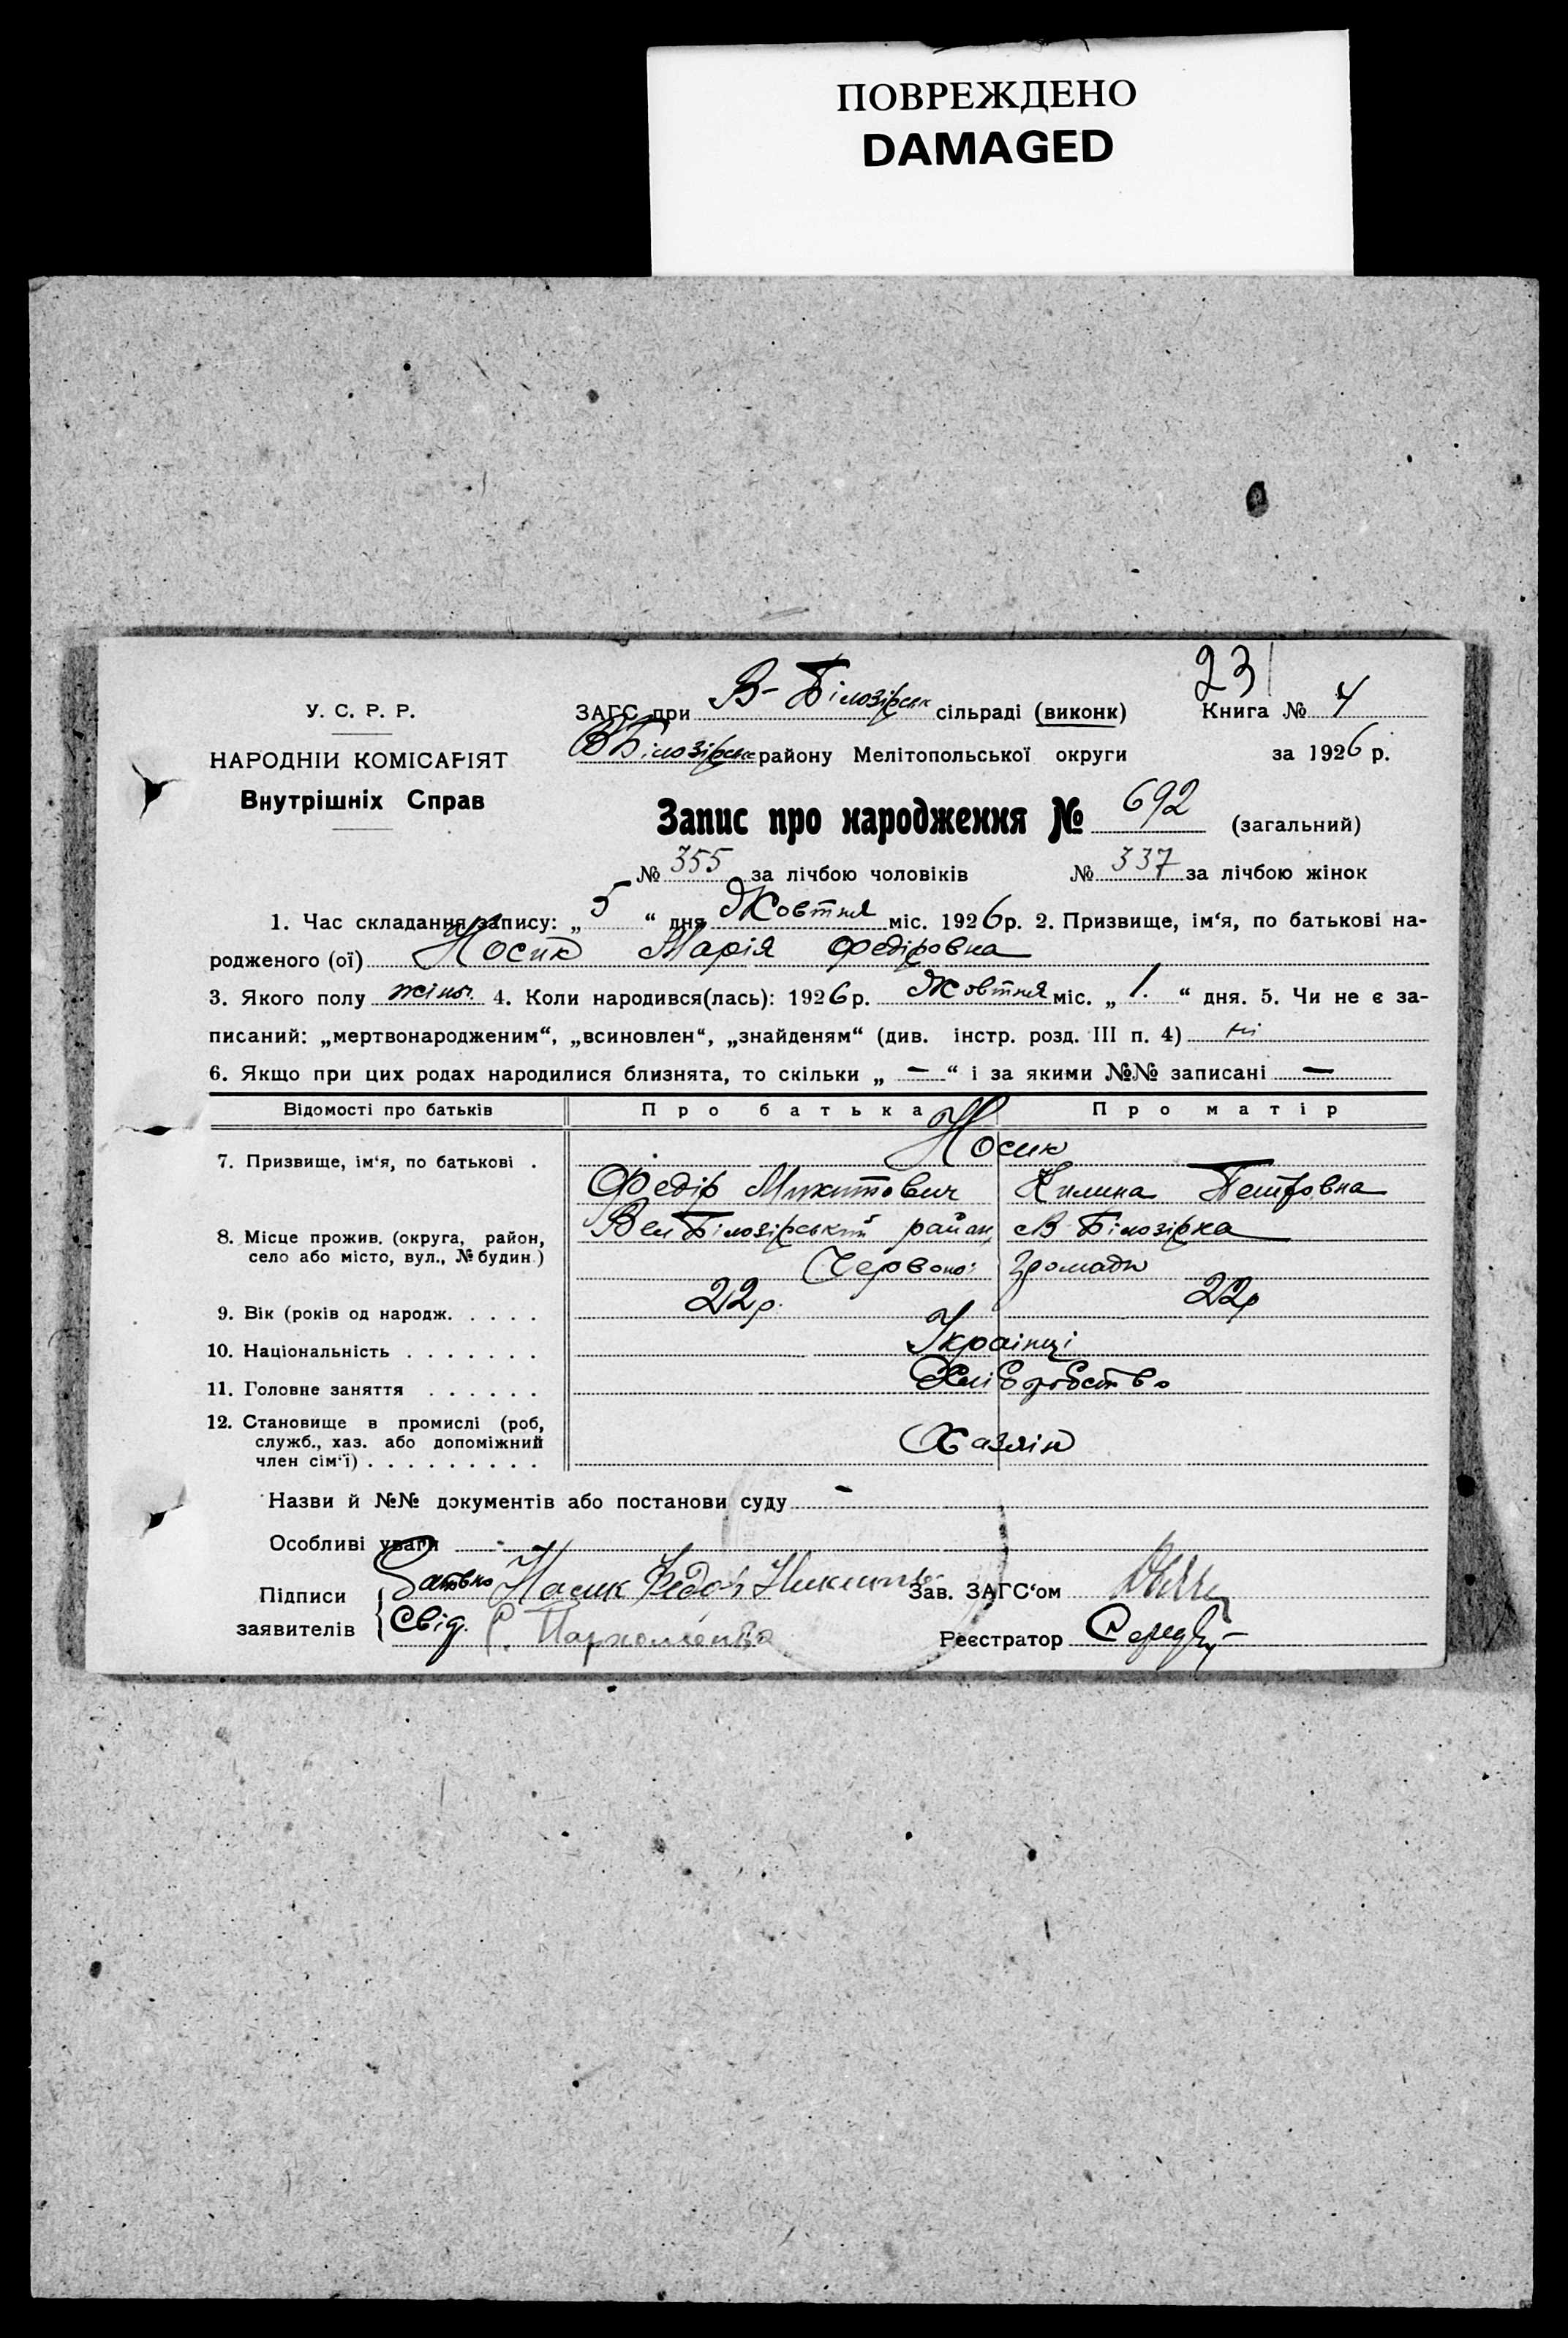 ПОВРЕЖДЕНО
DAMAGED
231
У. С. Р. Р.
ЗАГС при В-Білозірськ сільраді (виконк) Книга № 4
НАРОДНІЙ КОМІСАРІЯТ
В Білозірськ району Мелітопольської округи за 1926 р.
Внутрішніх Справ
Запис про народження № 692 (загальний)
№ 355 за лічбою чоловіків № 337 за лічбою жінок
1. Час складання запису: „ 5 “ дня Жовтня міс. 1926 р. 2. Призвище, ім‘я, по батькові на-
родженого (ої) Носик Марія Федіровна
3. Якого полу жіноч. 4. Коли народився(лась): 1926 р. Жовтня міс. „ 1. “ дня. 5. Чи не є за-
писаний: „мертвонародженим“, „всиновлен“, „знайденям“ (див. інстр. розд. III п. 4) ні
6. Якщо при цих родах народилися близнята, то скільки „ — “ і за якими №№ записані —
Відомості про батьків Про батька Про матір
7. Призвище, ім‘я, по батькові . Носик
Федір Микитович Килина Петровна
8. Місце прожив. (округа, район,
село або місто, вул., № будин.)
Вел Білозірський район В-Білозірка
Червоної громади
9. Вік (років од народж. . . . . 22р. 22р
10. Національність . . . . . . . Українці
11. Головне заняття . . . . . . Хліборобство
12. Становище в промислі (роб,
служб., хаз. або допоміжний
член сім‘ї) . . . . . . . . .
Хазяїн
Назви й №№ документів або постанови суду —
Особливі уваги -
Підписи
заявителів
Батько Носик Федор Никит Зав. ЗАГС‘ом
Свід. Пархоменко Реєстратор